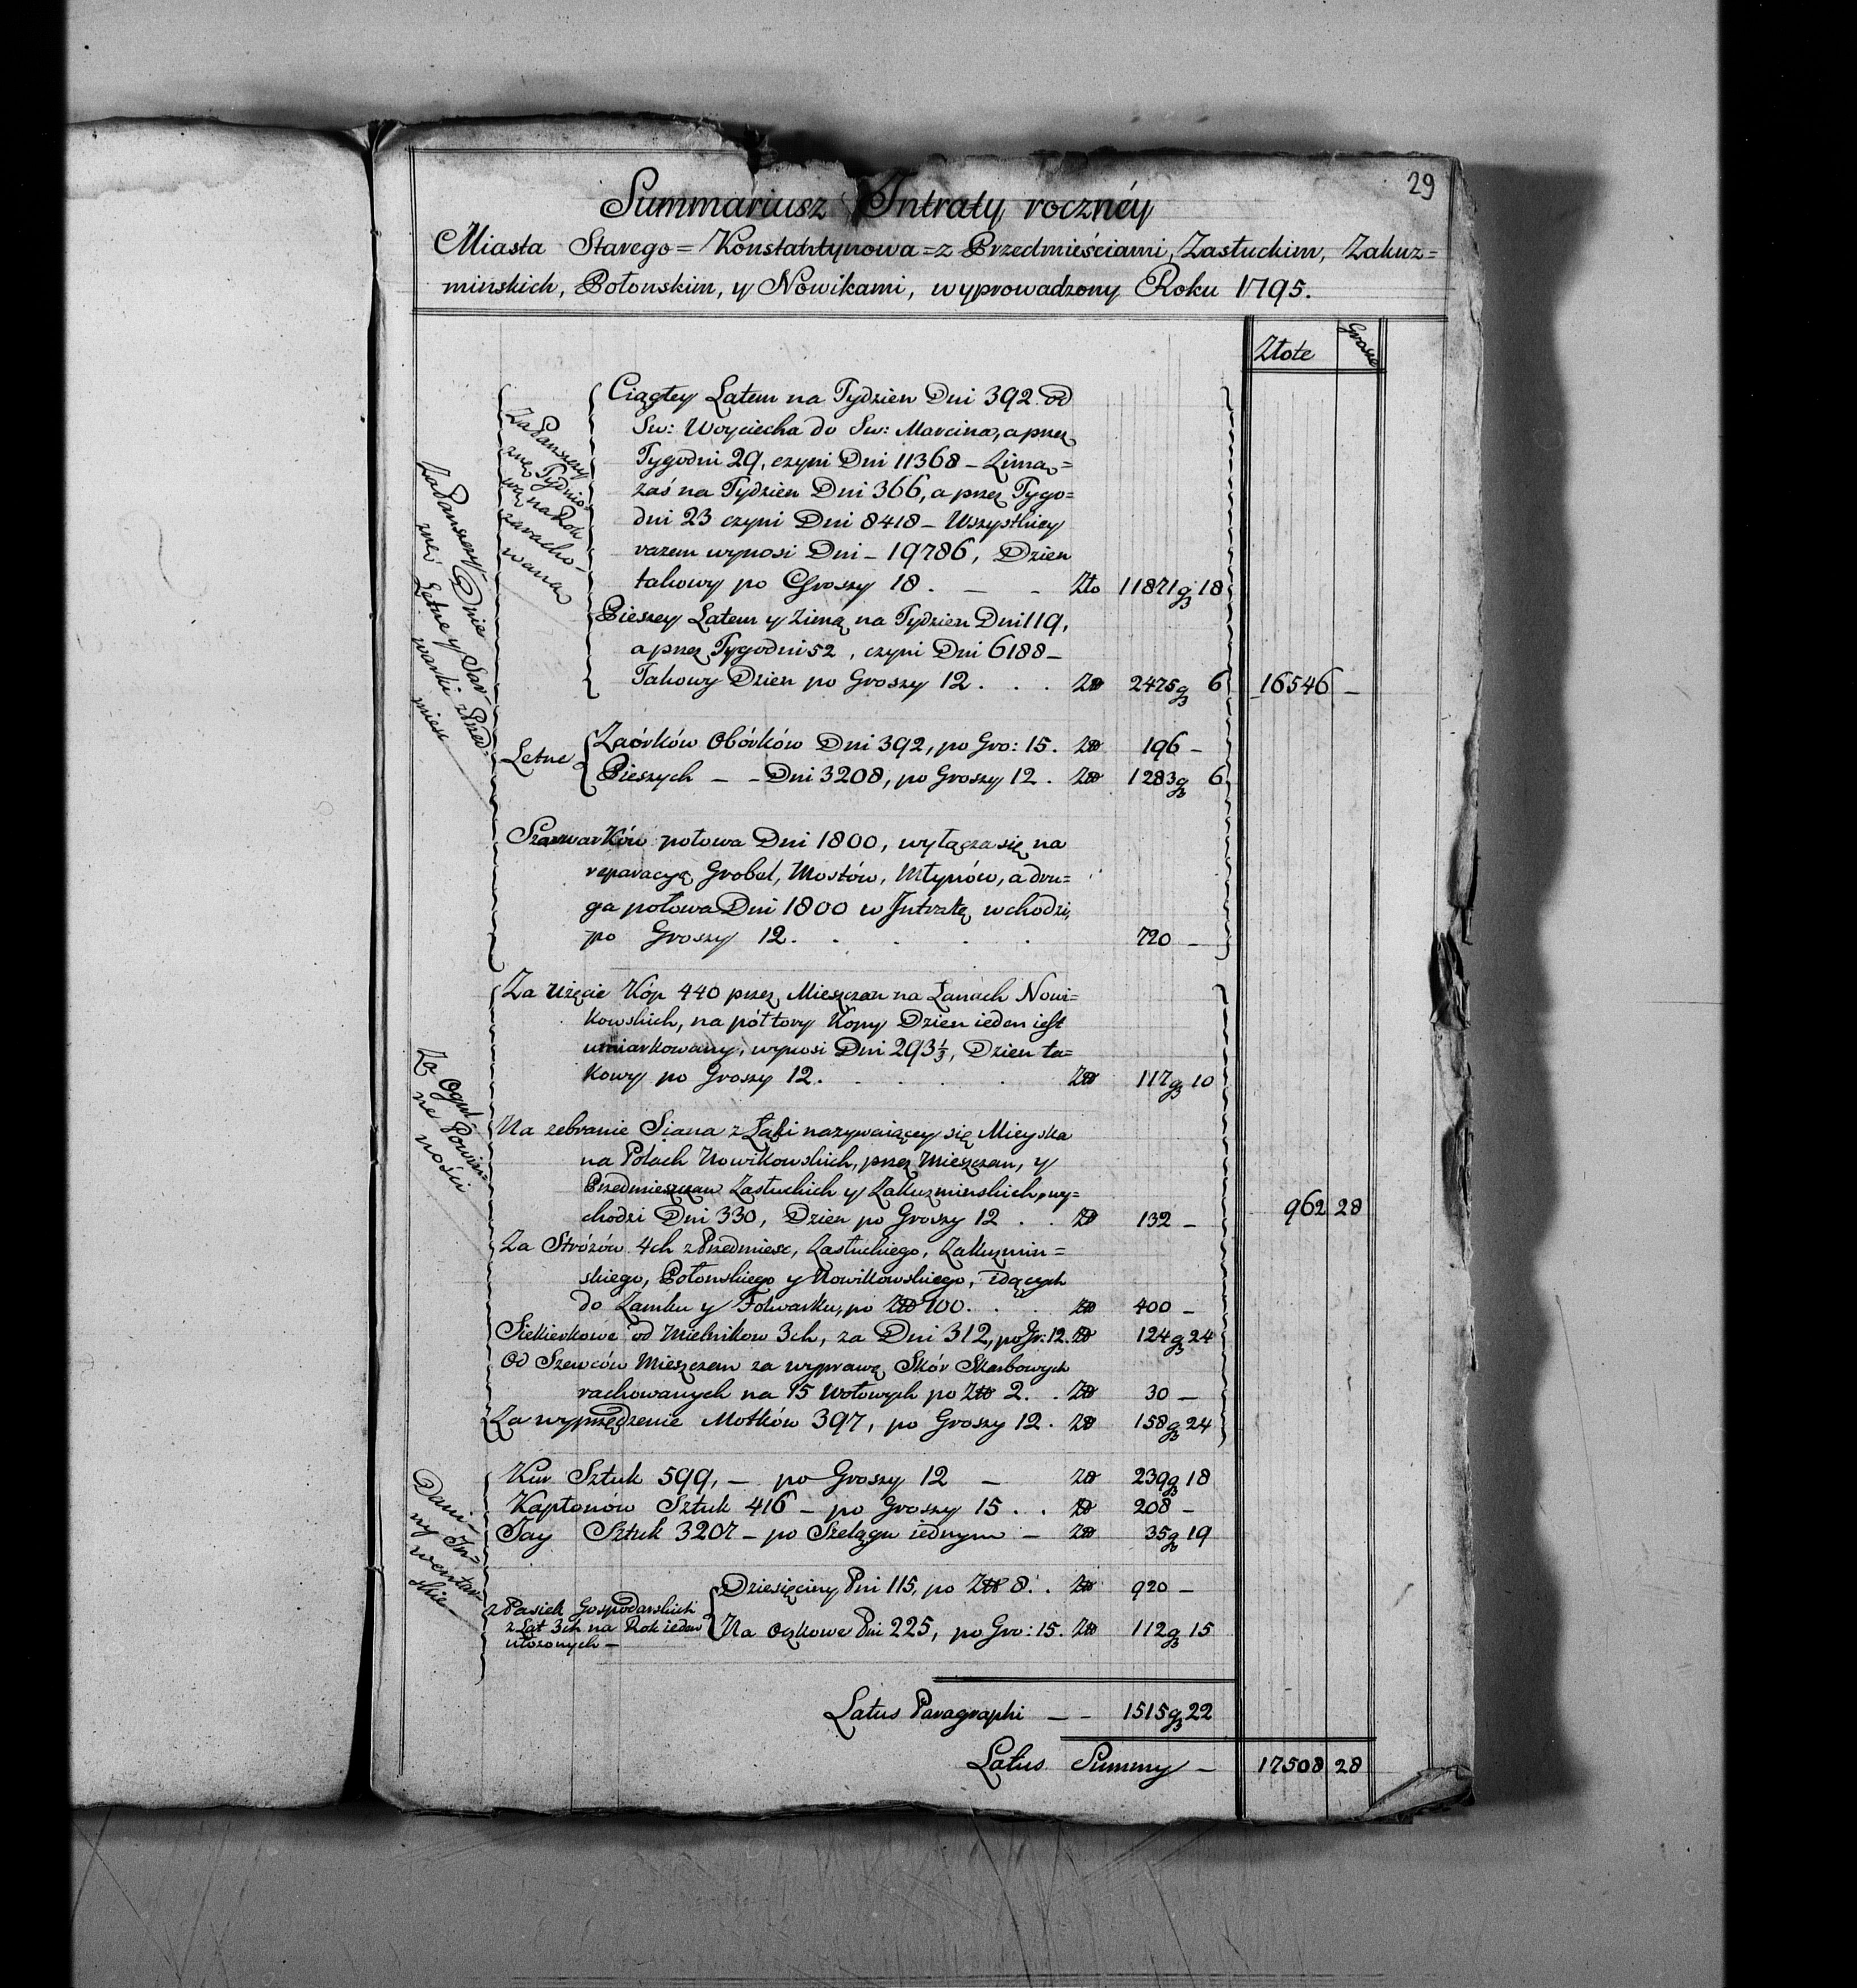 29
Summariusz Intraty roczney
Miasta Starego=Konstantynowa=z Przedmieściami, Zasłuckim, Zakuz=
minskich, Połonskim, y Nowikami, wyprowadzony Roku 1795.
Złote Grosze
Za Panszczy-
znę Dnie
Letne y Szar-
warki z Przed-
miesc
Za Panszczy-
znę Tydnio-
wą na Rok
zaracho-
waną
Ciągłey Latem na Tydzien Dni 392 od
Sw: Woyciecha do Sw: Marcina, a przez
Tygodni 29, czyni Dni 11368 – Zimą=
zaś na Tydzien Dni 366, a przez Tygo=
dni 23 czyni Dni 8418 – Wszystkiey
razem wynosi Dni – 19786, Dzien
takowy po Groszy 18 . – - Zło 11871 g 18
Pieszey Latem y Zimą na Tydzien Dni 119,
a przez Tygodni 52, czyni Dni 6188 –
Takowy Dzien po Groszy 12 . . . Zło 2475 g 6 16546 –
Letne
Zaórków Obórków Dni 392, po Gro: 15. Zło 196 –
Pieszych – – Dni 3208, po Groszy 12 . Zło 1283 g 6
Szarwarków połowa Dni 1800, wyłącza się na
reparacyą Grobel, Mostów, Młynów, a dru=
ga połowa Dni 1800 w Intratę wchodzi,
po Groszy 12 . . . . . 720 –
Za Ogul-
ne Powin-
ności
Za Użęcie Kóp 440 przez Mieszczan na Łanach Nowi=
kowskich, na półtory Kopy Dzien ieden iest
umiarkowany, wynosi Dni 293⅓, Dzien ta=
kowy po Groszy 12. . . . . Zło 117 g 10
Na zebranie Siana z Łąki nazywaiącey się Mieyska
na Polach Nowikowskich, przez Mieszczan, y
Przedmieszczan Zasłuckich y Zakuzminskich, wy=
chodzi Dni 330, Dzien po Groszy 12 . . Zło 132 – 962 28
Za Stróżów 4ch z Przedmiesc, Zasłuckiego, Zakuzmin=
skiego, Połonskiego y Nowikowskiego, idących
do Zamku y Folwarku, po Zło 100. . . Zło 400 –
Siekierkowe od Mielnikow 3ch, za Dni 312, po Gr: 12. Zło 124 g 24
Od Szewców Mieszczan za wyprawę Skór Skarbowych
rachowanych na 15 Wołowych po Zło 2. . Zło 30 –
Za wyprzędzenie Motków 397, po Groszy 12 . Zło 158 g 24
Dani-
ny In-
wentar-
skie
Kur Sztuk 599, – po Groszy 12 – Zło 239 g 18
Kapłonów Sztuk 416 – po Groszy 15 . . Zło 208 –
Jay Sztuk 3207 – po Szelągu iednym – Zło 35 g 19
z Pasiek Gospodarskich
z Lat 3ch na Rok ieden
ułożonych –
Dziesięciny Pni 115, po Zło 8. . Zło 920 –
Na Oczkowe Pni 225, po Gro: 15. Zło 112 g 15
Latus Paragraphi – – 1515 g 22
Latus Summy – 17508 28